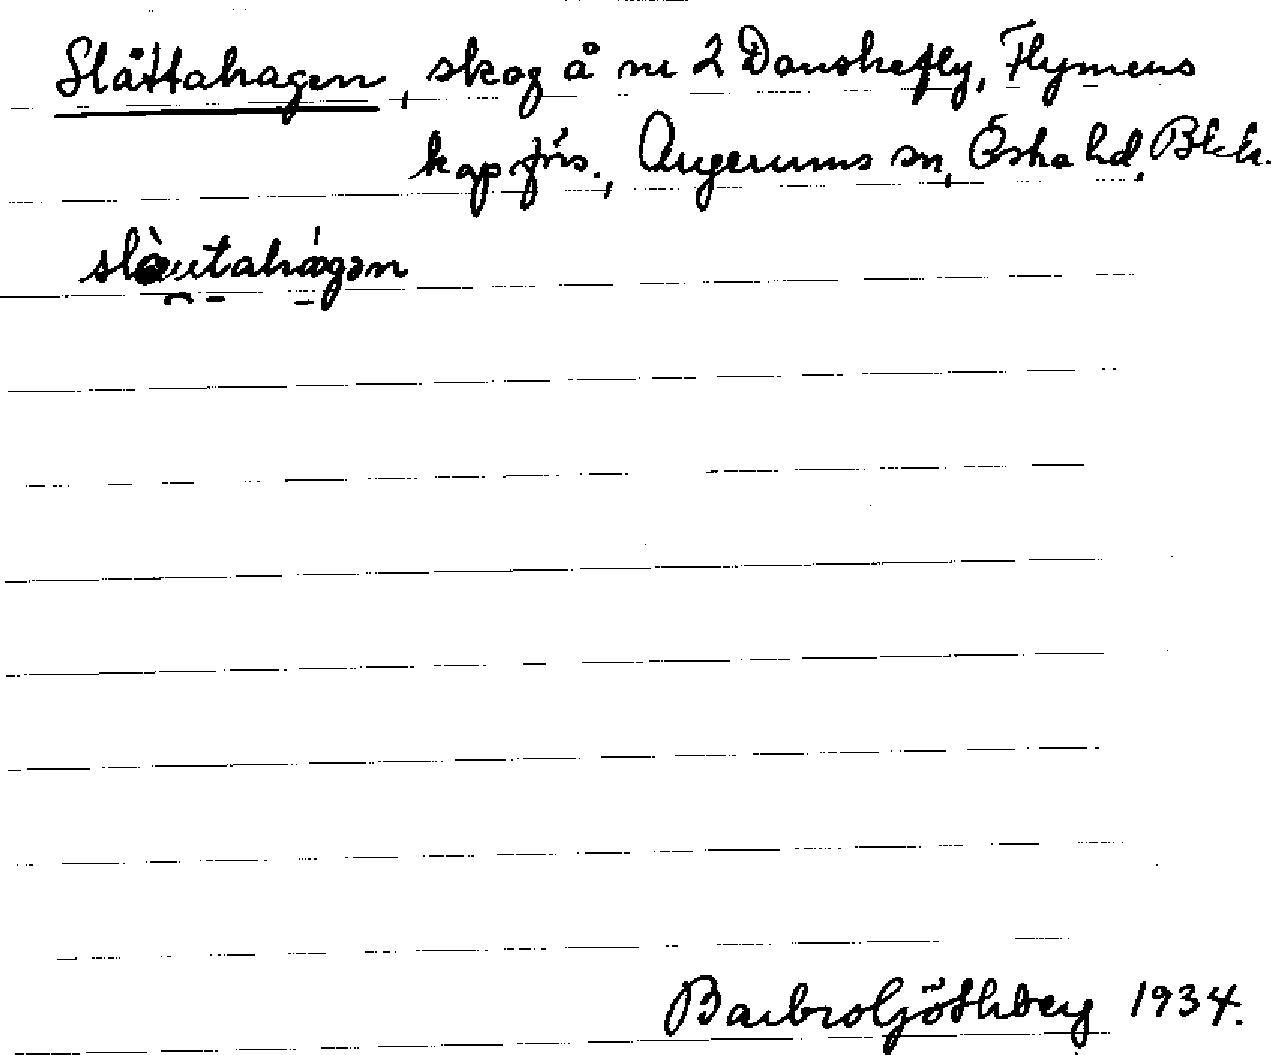 Slåttahagen, skog å nr 2 Danskefly, Flymens
kapförs., Augerums sn, Östra hd, Blek.
slàutahágən
Barbro Göthberg 1934.